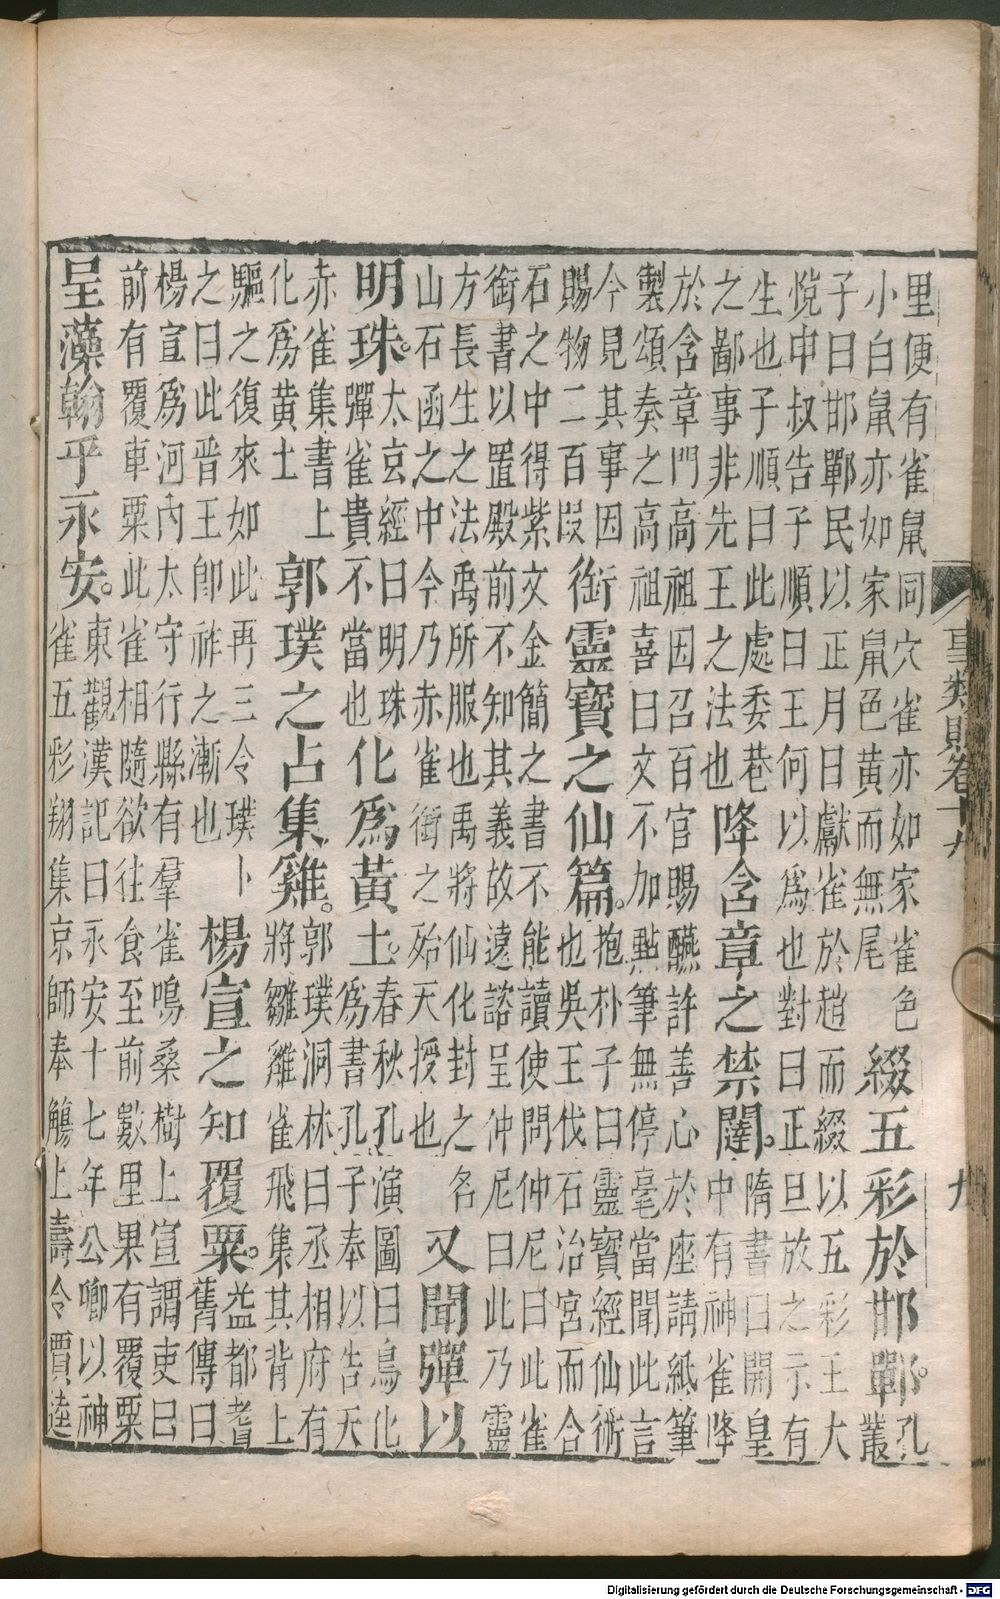 里便有雀鼠同穴雀亦如家雀色
小白鼠亦如家鼠色黃而無尾
綴五彩於邯鄲。
孔
叢
子曰邯鄲民以正月日獻雀於趙而綴以五彩王大
悅申叔告子順曰王何以爲也對曰正旦放之示有
生也子順曰此處委巷
之鄙事非先王之法也
降含章之禁闥。
隋書曰開皇
中有神雀降
於含章門高祖因召百官賜醼許善心於座請紙筆
製頌奏之高祖喜曰文不加點筆無停毫當聞此言
今見其事因
賜物二百段
銜靈寶之仙篇。
抱朴子曰靈寶經仙術
也吳王伐石治宮而合
石之中得紫文金簡之書不能讀使問仲尼曰此雀
銜書以置殿前不知其義故遠諮呈仲尼曰此乃靈
方長生之法禹所服也禹將仙化封之名
山石函之中今乃赤雀銜之殆天授也
又聞彈以
明珠。
太玄經曰明珠
彈雀貴不當也
化爲黃土。
春秋孔演圖曰烏化
爲書孔子奉以告天
赤雀集書上
化爲黃土
郭璞之占集雞。
郭璞洞林曰丞相府有
將雛雞雀飛集其背上
驅之復來如此再三令璞卜
之曰此晉王卽祚之漸也
楊宣之知覆粟。
益都耆
舊傳曰
楊宣爲河內太守行縣有羣雀鳴桑樹上宣謂吏曰
前有覆車粟此雀相隨欲往食至前數里果有覆粟
呈藻翰乎永安。
東觀漢記曰永安十七年公卿以神
雀五彩翔集京師奉觴上壽令賈逵
事類賦卷十九
九
Digitalisierung gefördert durch die Deutsche Forschungsgemeinschaft - DFG